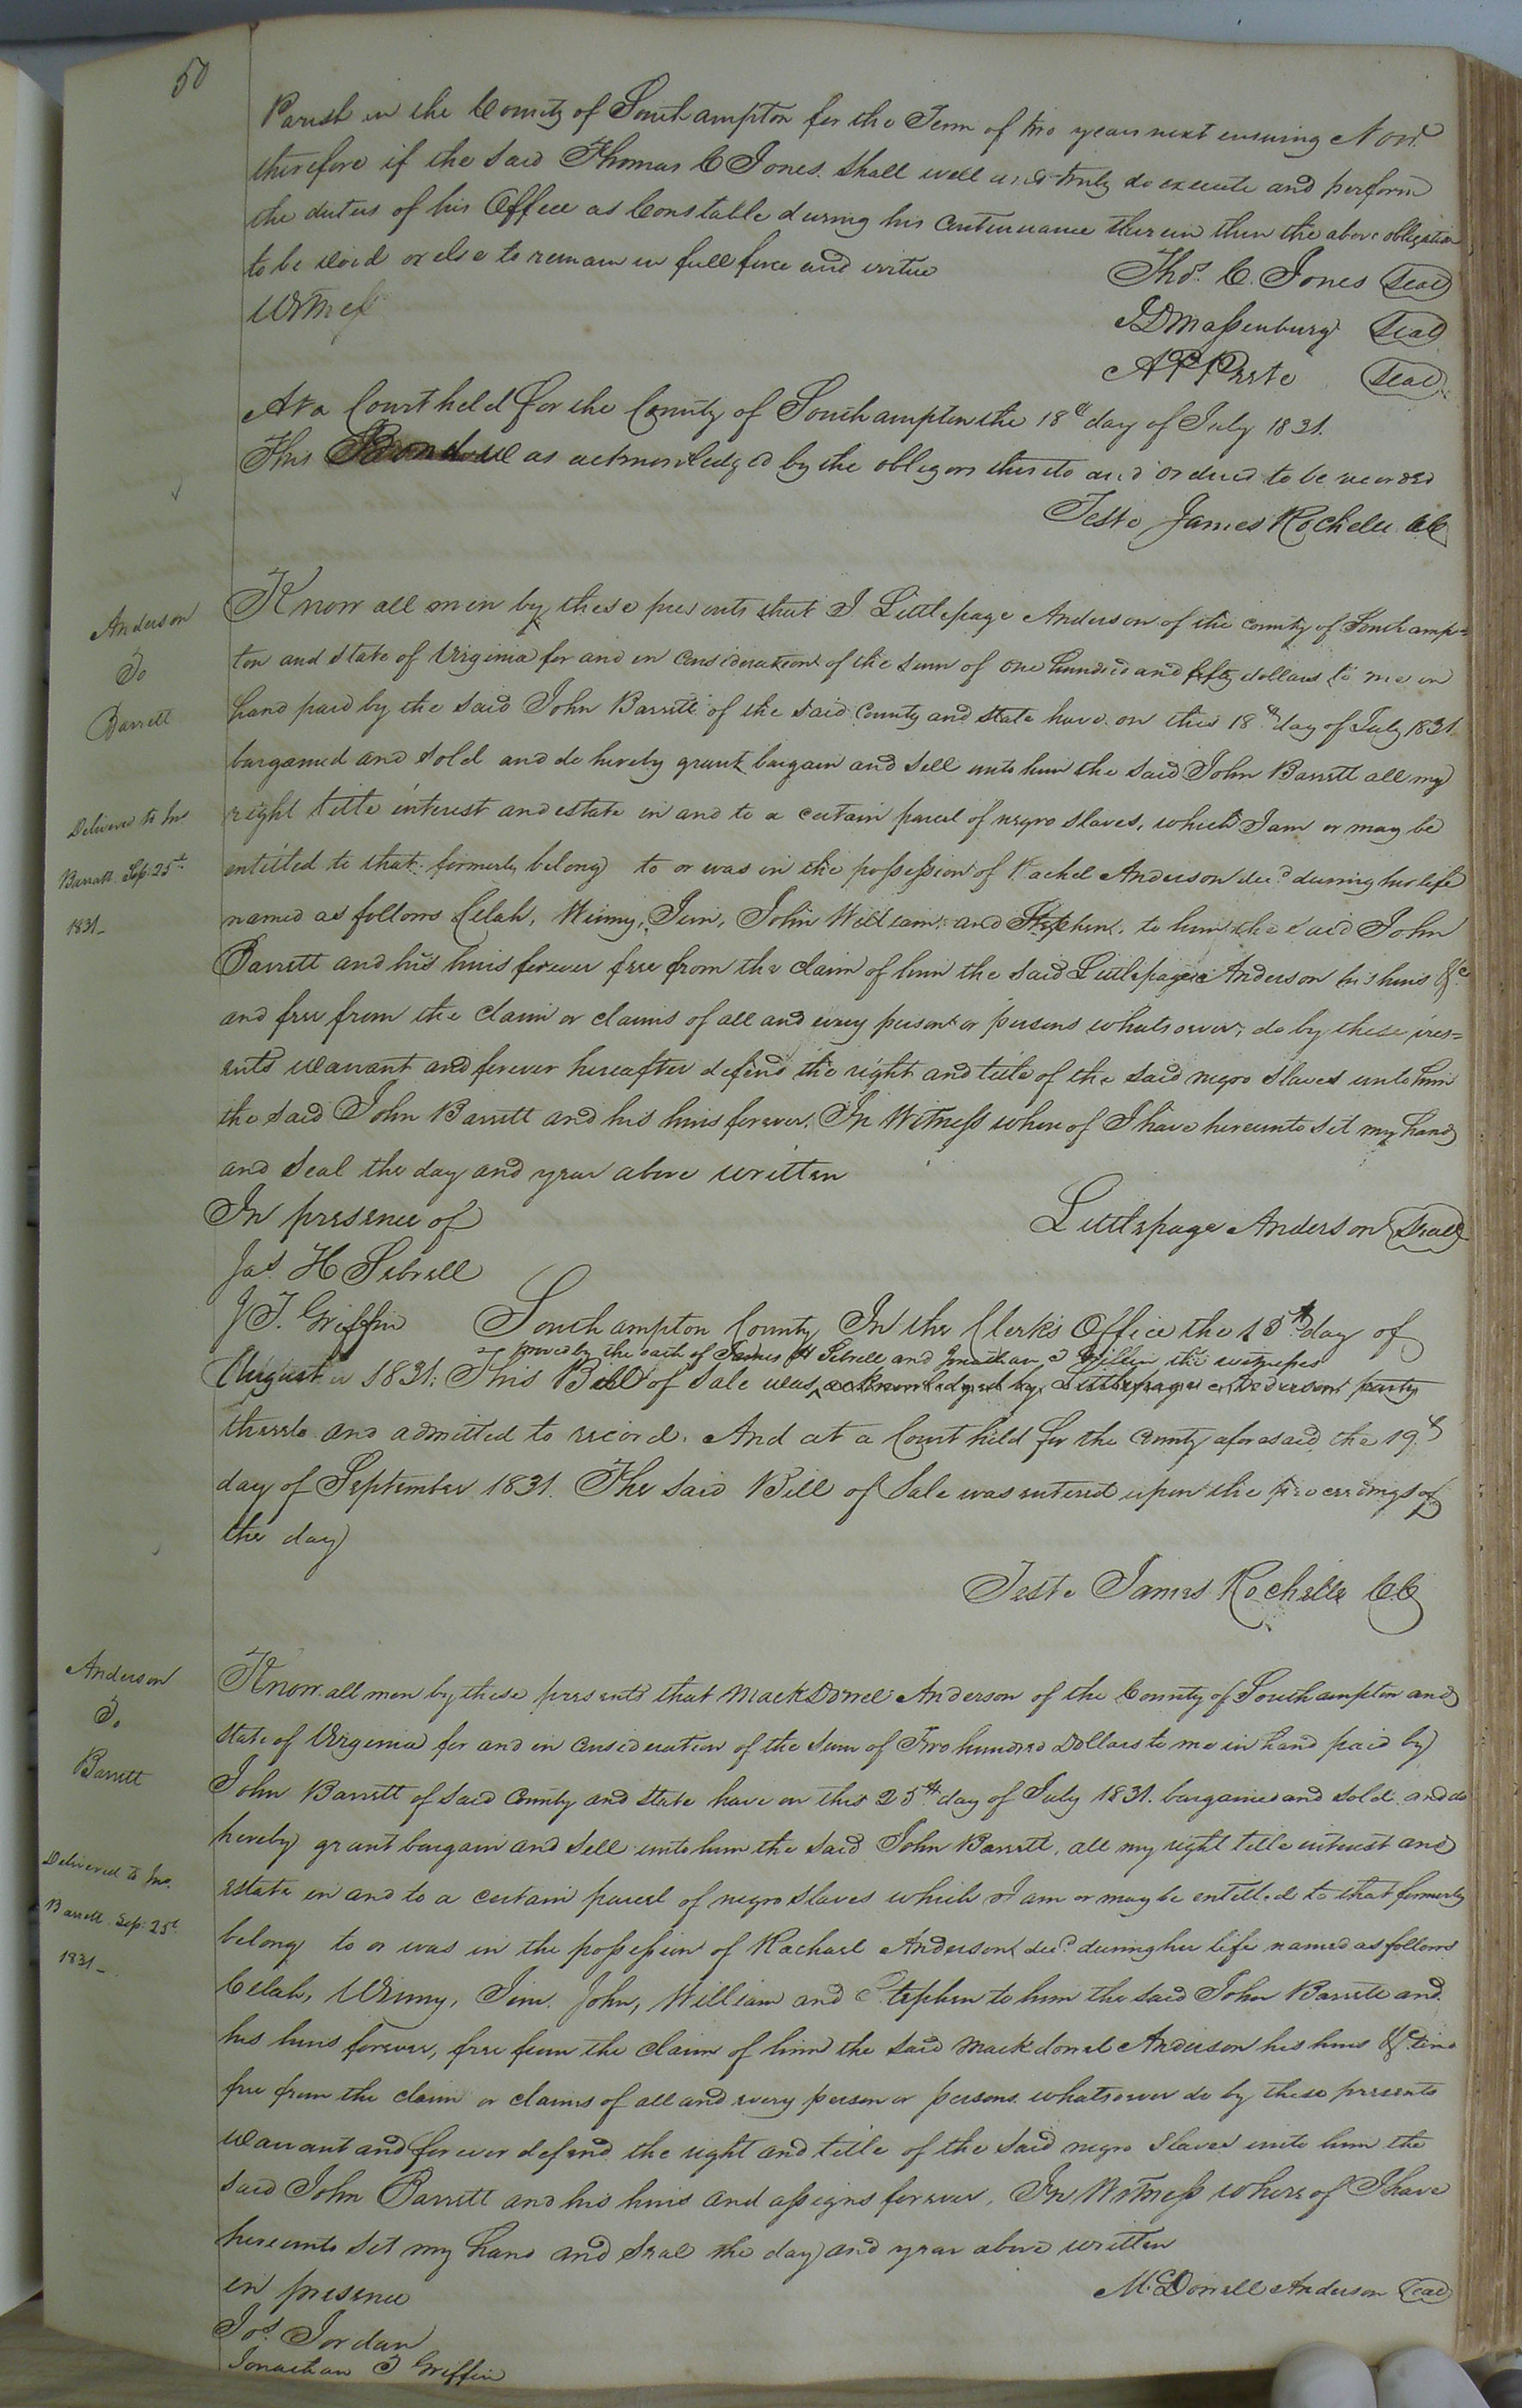 50
Parish in the County of Southampton for the Term of two years next ensuing Now
therefore if the said Thomas C Jones. shall well and truly do execute and perform
the duties of his Office as Constable during his continuance therein then the above obligation
to be void or else to remain in full force and virtue
Thos. C. Jones Seal
Witness
Massenburg Seal
Seal
At a Court held for the County of Southampton the 18th day of July 1831.
This Bond was acknowledged by the obligors thereto and ordered to be recorded
Teste James Rochelle CC
Anderson
To
Barrett
Delivered to Jno.
Barratt. Sep. 25th
1831_
Know all men by these presents that I Littlepage Anderson of the county of Southamp=
ton and state of Virginia for and in consideration of the sum of one hundred and fifty dollars to me in
hand paid by the said John Barrett of the said County and state have on this 18th day of July 1831
bargained and sold and do hereby grant bargain and sell unto him the said John Barrett all my
right title interest and estate in and to a certain parcel of negro slaves, which I am or may be
entitled to that formerly belong to or was in the possession of Rachel Anderson decd. during her life
named as follows Celah, Winny, Jim, John William, and Stephen, to him the said John
Barrett and his heirs forever free from the claim of him the said Littlepage Anderson his heirs &c
and free from the claim or claims of all and every person or persons whatsoever, do by these pres=
ents warrant and forever hereafter defend the right and title of the said negro slaves unto him
the said John Barrett and his heirs forever. In Witness where of I have hereunto set my hand
and seal the day and year above written
In presence of
Littlepage Anderson Seal
Jas. H Sebrell
J T. Griffin
Southampton County In the Clerk's Office the day of
proved by the oath of James H Sebrell and Jonathan T Griffin the witnesses
August 1831. This Bill of Sale was acknowledged by Littlepage Anderson party
thereto and admitted to record. And at a Court held for the County aforesaid the 19th
day of September 1831. The said Bill of Sale was entered upon the proceedings of
the day
Teste James Rochelle CC
Anderson
To
Barrett
Delivered to Jno.
Barrett. Sep: 25t
1831_
Know all men by these presents that MackDonel Anderson of the County of Southampton and
state of Virginia for and in consideration of the sum of Two hundred Dollars to me in hand paid by
John Barrett of said County and state have on this 25th day of July 1831. bargained and sold and do
hereby grant bargain and sell unto him the said John Barrett, all my right title interest and
estate in and to a certain parcel of negro slaves which I am or may be entitled to that formerly
belong to or was in the possession of Rachael Anderson decd. during her life named as follows
Celah, Winny, Jim. John, William and Stephen to him the said John Barrett and
his heirs forever, free from the claim of him the said Mackdonel Anderson his heirs &c
free from the claim or claims of all and every person or persons whatsoever do by these presents
warrant and forever defend the right and title of the said negro slaves unto him the
said John Barrett and his heirs and assigns forever. In Witness where of I have
hereunto set my hand and seal the day and year above written
in presence
McDonell Anderson Seal
Jos. Jordan
Jonathan T Griffin